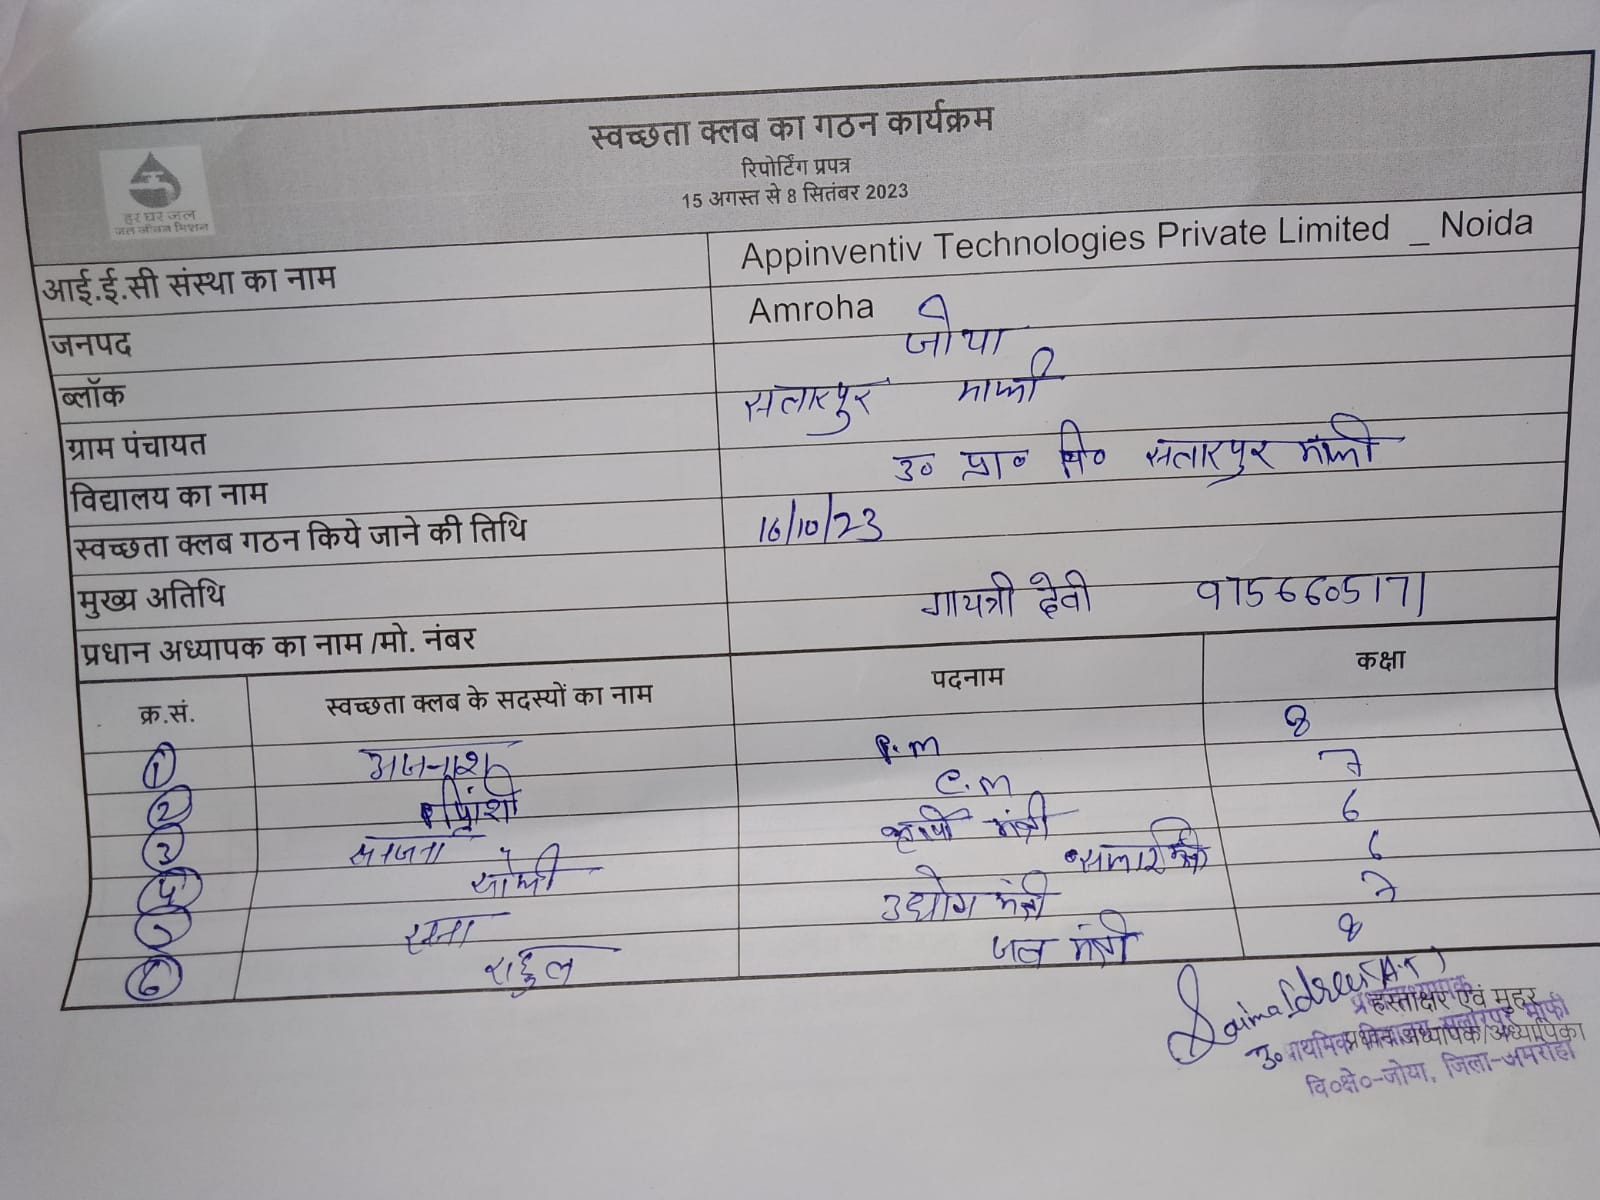 स्वच्छता क्लब का गठन कार्यक्रम
रिपोर्टिंग प्रपत्र
15 अगस्त से 8 सितंबर 2023
हर घर जल
जल जीवन मिशन
आई.ई.सी संस्था का नाम Appinventiv Technologies Private Limited _ Noida
जनपद Amroha
ब्लॉक जोया
ग्राम पंचायत सलारपुर माफी
विद्यालय का नाम उ० प्रा० वि० सलारपुर माफी
स्वच्छता क्लब गठन किये जाने की तिथि 16/10/23
मुख्य अतिथि
प्रधान अध्यापक का नाम /मो. नंबर गायत्री देवी 9756605171
क्र.सं. स्वच्छता क्लब के सदस्यों का नाम पदनाम कक्षा
1 P.M 8
2 C.M 7
3 कृषि मंत्री 6
4 6
5 उद्योग मंत्री 7
6 राहुल जल मंत्री 8
Saima Idrees (A.T)
हस्ताक्षर एवं मुहर
प्रधान अध्यापक/अध्यापिका
प्रधानाध्यापक
उ० प्राथमिक विद्यालय सलारपुर माफी
वि०क्षे०-जोया, जिला-अमरोहा